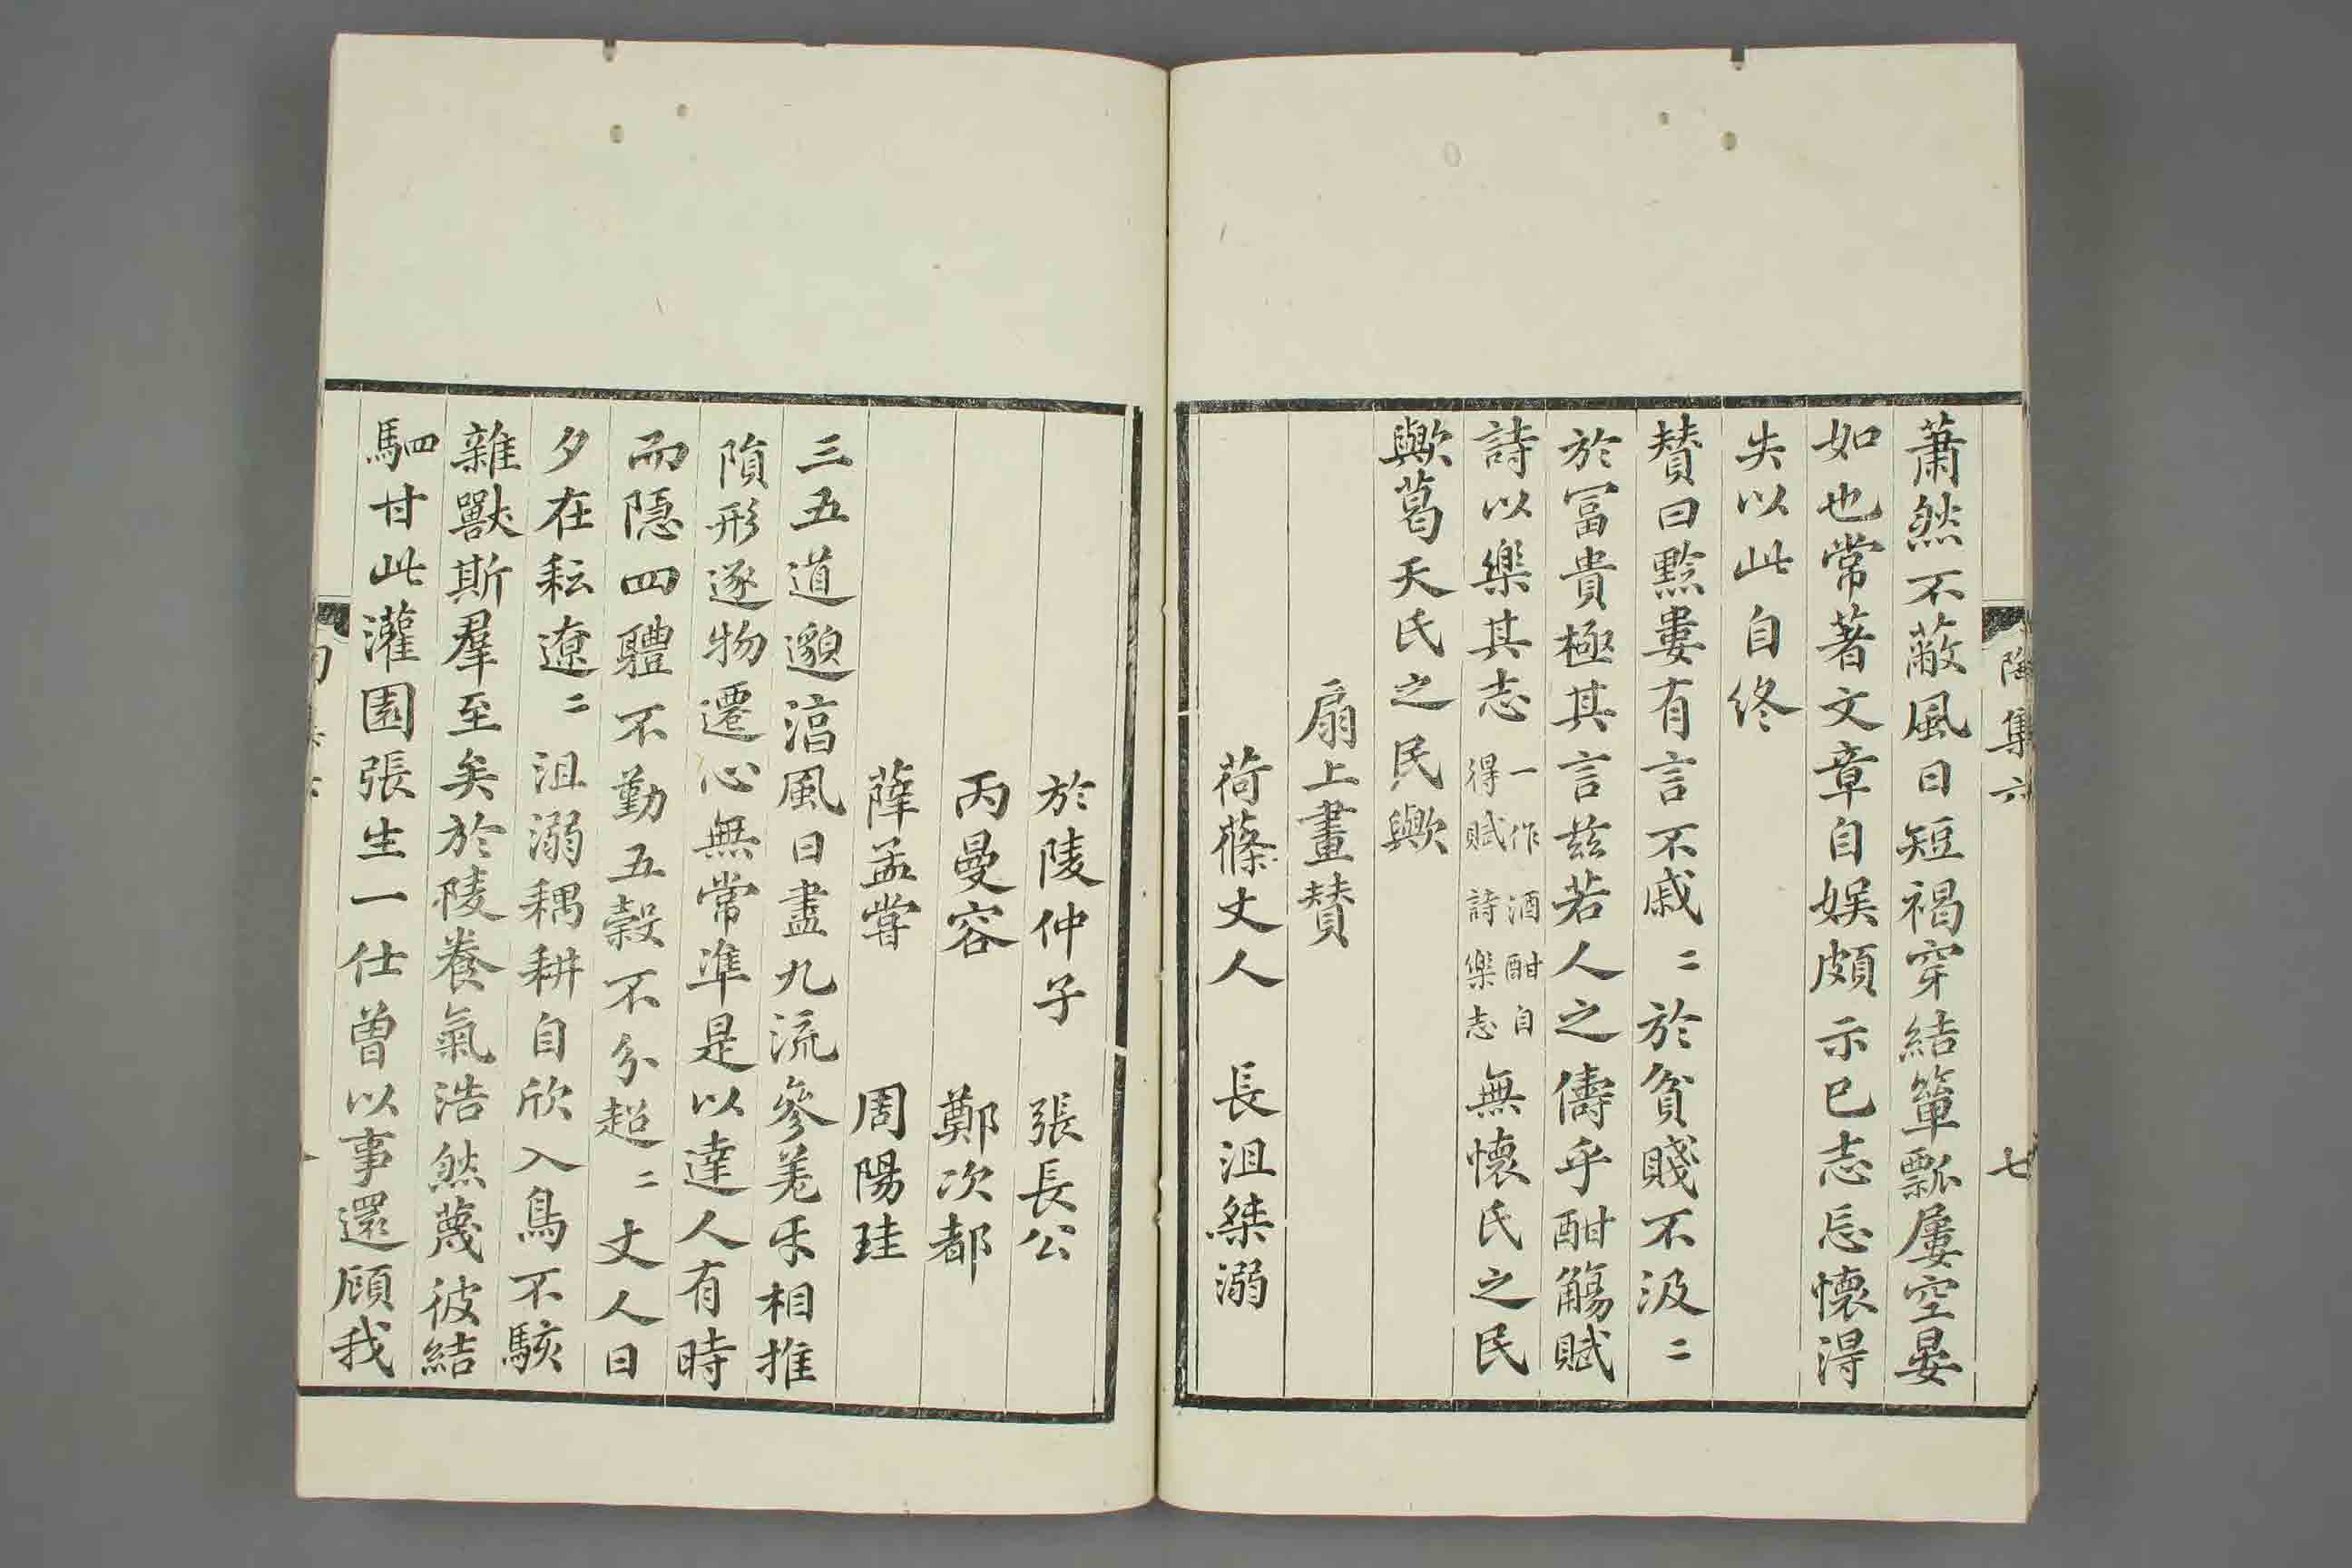 蕭然不蔽風日短褐穿結簞瓢屢空晏
如也常著文章自娛頗示己志忘懷得
失以此自終
賛曰黔婁有言不戚〻於貧賤不汲〻
於冨貴極其言茲若人之儔乎酣觴賦
詩以樂其志一作酒酣自得賦詩樂志無懷氏之民
歟葛天氏之民歟
扇上畫賛
荷蓧丈人　長沮桀溺
於陵仲子　張長公
丙曼容　鄭次都
薛孟甞　周陽珪
三五道邈淳風日盡九流參差互相推
隕形逐物遷心無常準是以達人有時
而隱四體不勤五穀不分超〻丈人日
夕在耘遼〻沮溺耦耕自欣入鳥不駭
雜獸斯羣至矣於陵養氣浩然蔑彼結
駟甘此灌園張生一仕曾以事還顧我
陶集六　七